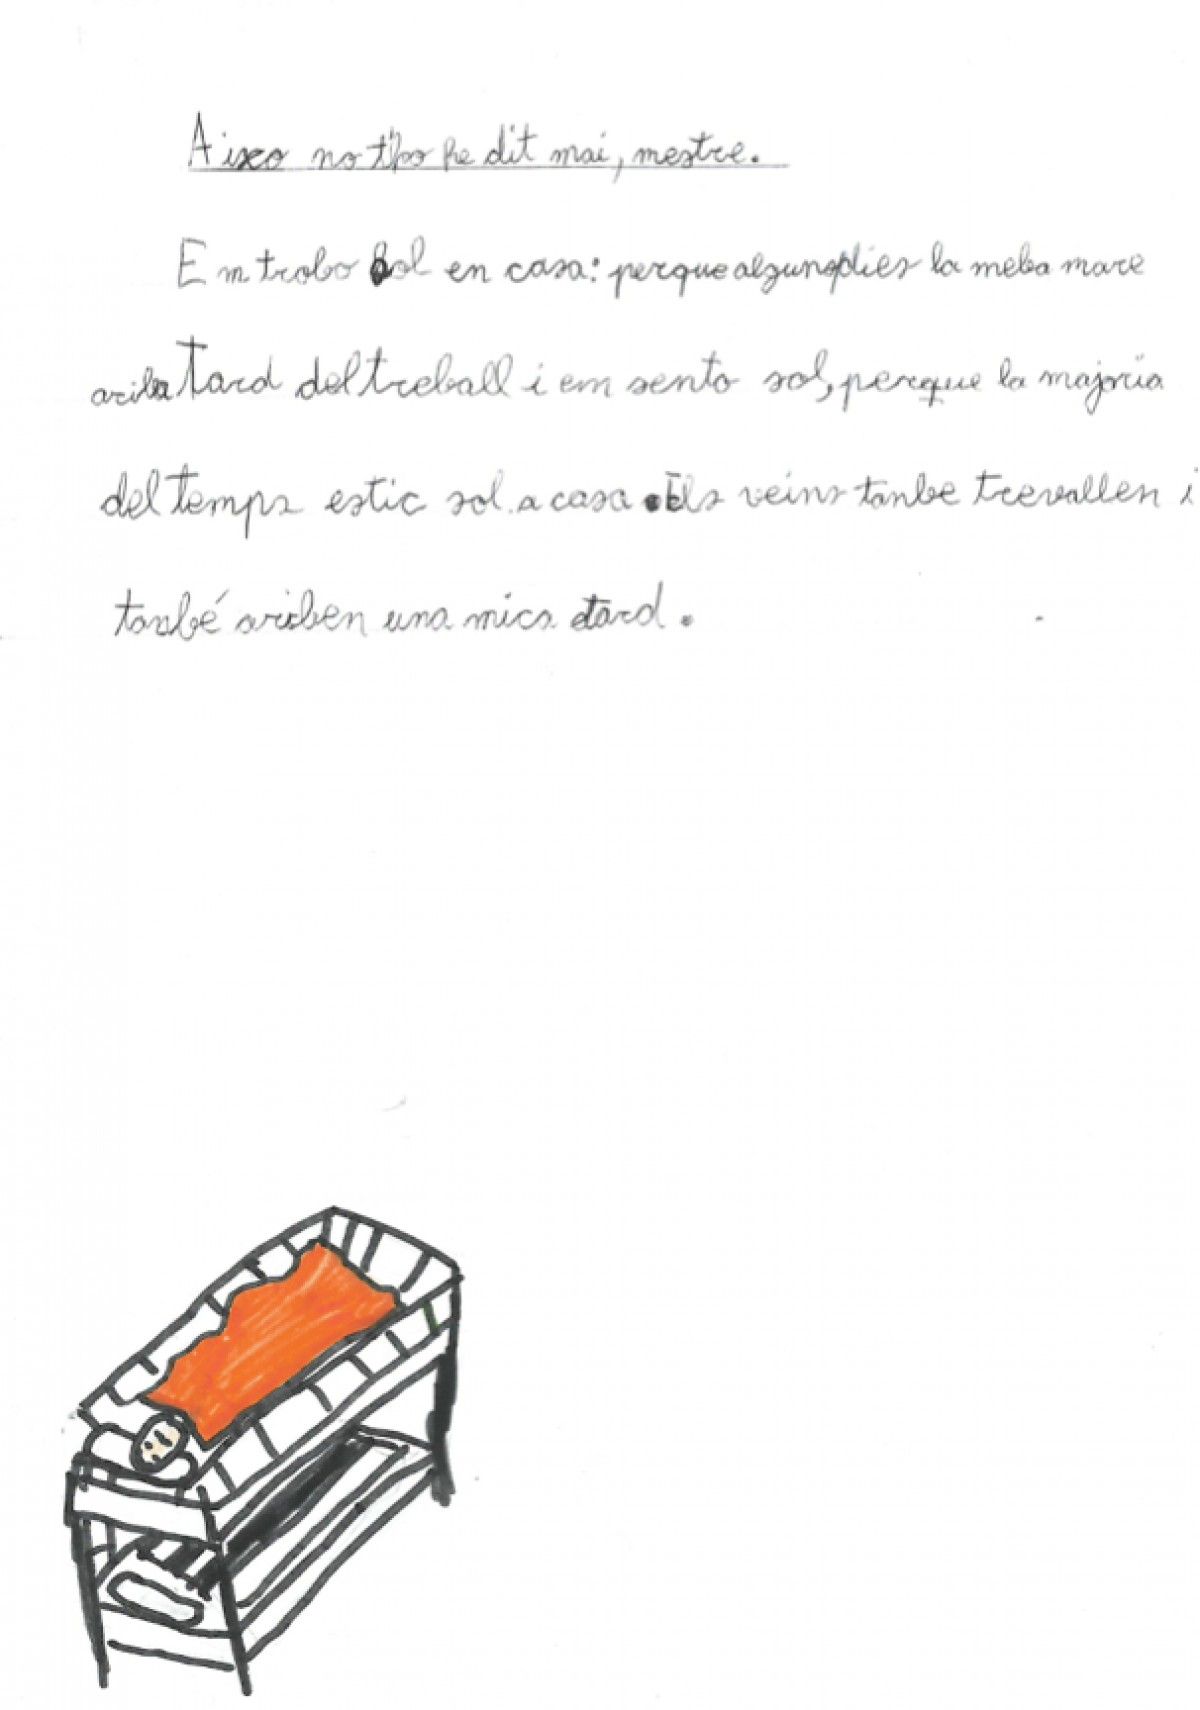 Aixo no t'ho he dit mai, mestre.
Em trobo sol en casa: perque alguns dies la meba mare
ariba tard del treball i em sento sol, perque la majoria
del temps estic sol a casa. Els veins tanbe trevallen i
tanbé ariben una mica tard.